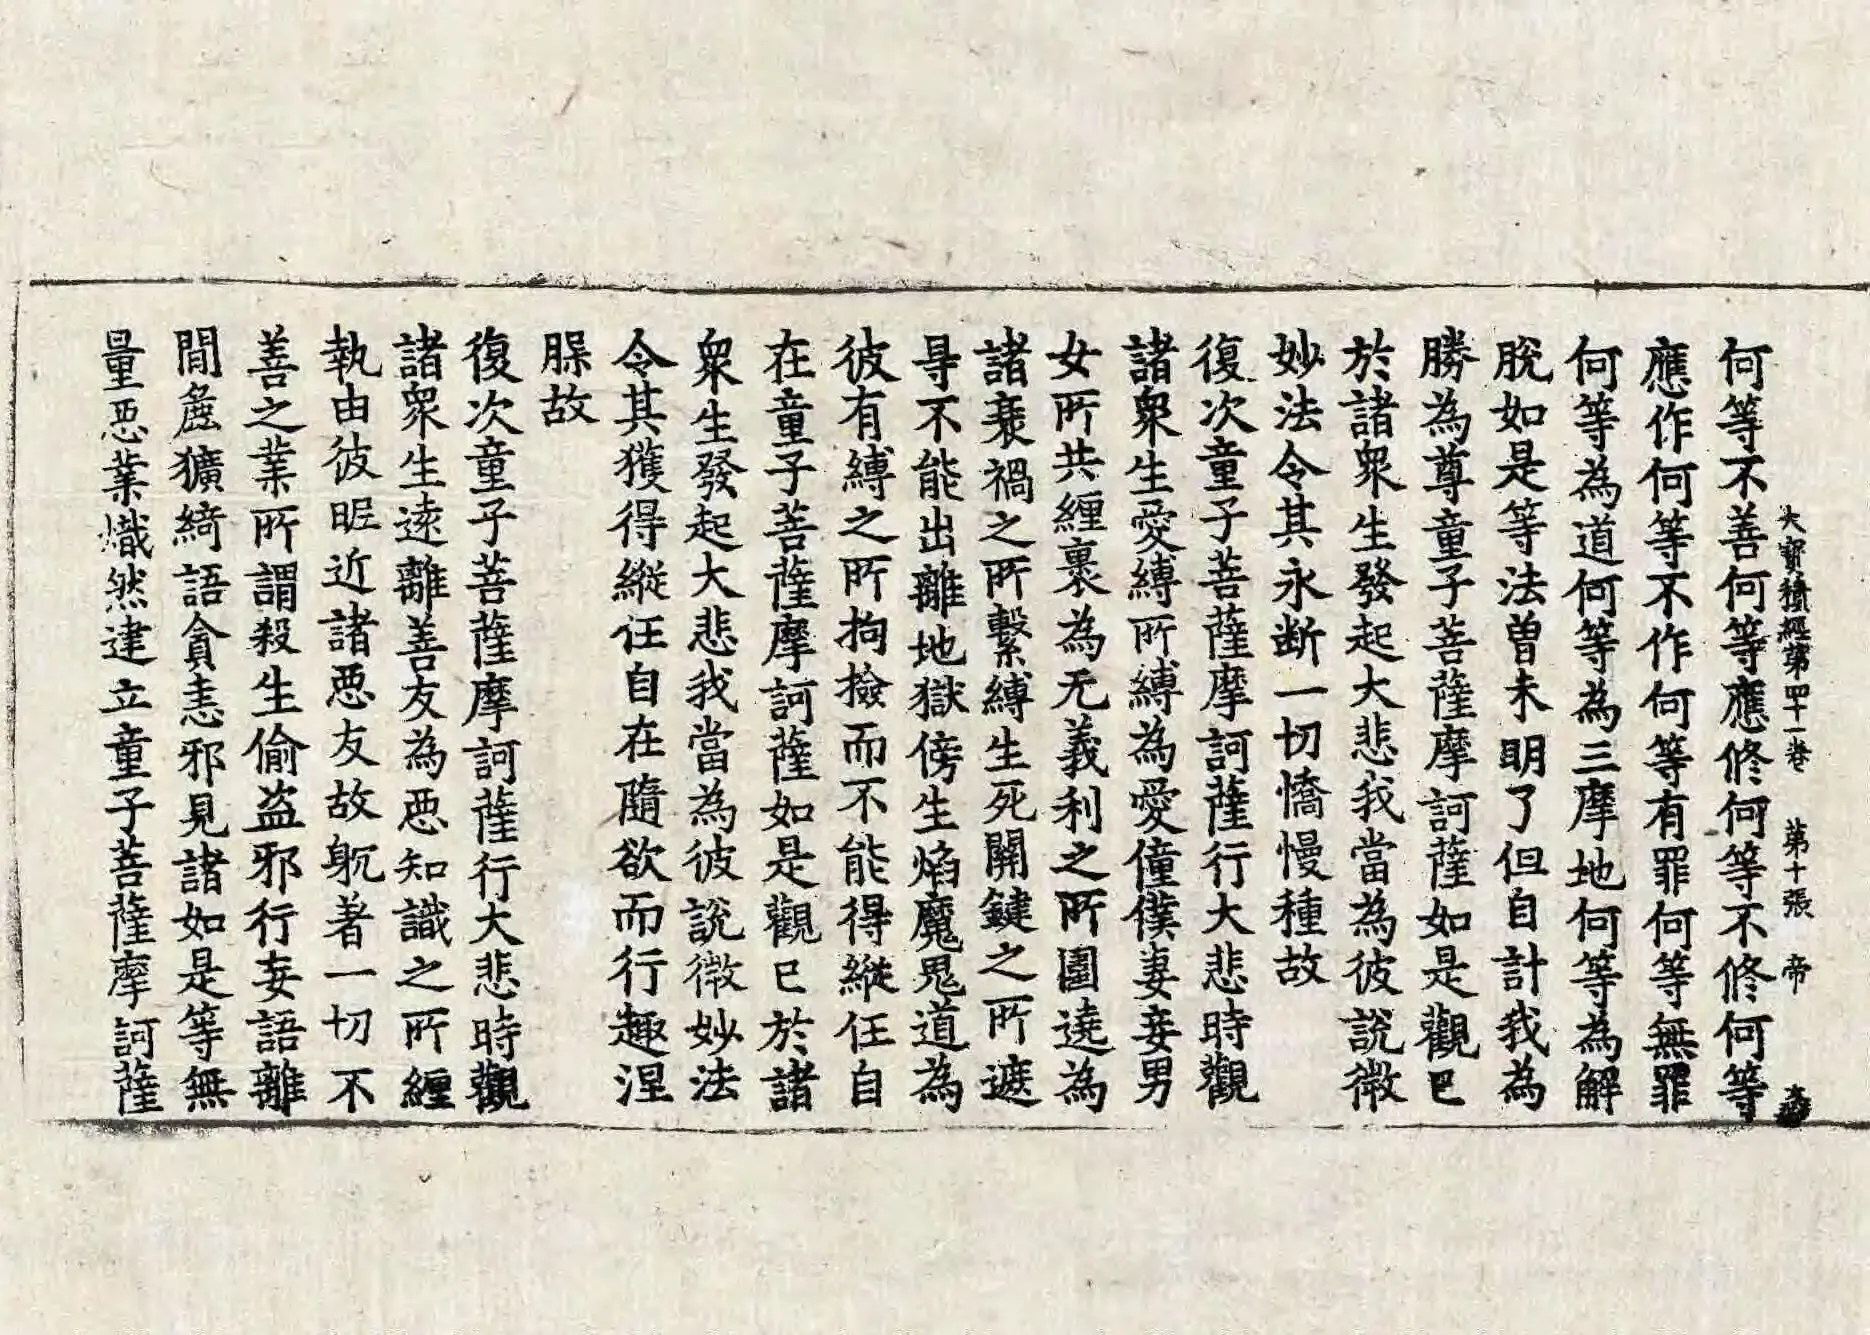 大寶積經第四十一卷 第十張 帝
何等不善何等應修何等不修何等
應作何等不作何等有罪何等無罪
何等為道何等為三摩地何等為解
脫如是等法曽未明了但自計我為
勝為尊童子菩薩摩訶薩如是觀已
於諸衆生發起大悲我當為彼說微
妙法令其永断一切憍慢種故
復次童子菩薩摩訶薩行大悲時觀
諸衆生愛縛所縛為愛僮僕妻妾男
女所共纏裹為无義利之所圍遶為
諸衰禍之所繫縛生死關鍵之所遮
㝵不能出離地獄傍生焰魔鬼道為
彼有縛之所拘撿而不能得縱任自
在童子菩薩摩訶薩如是觀已於諸
衆生發起大悲我當為彼說微妙法
令其獲得縱任自在隨欲而行趣涅
腂故
復次童子菩薩摩訶薩行大悲時觀
諸衆生遠離善友為惡知識之所纏
執由彼昵近諸惡友故躭著一切不
善之業所謂殺生偷盗邪行妄語離
間麁獷綺語貪恚邪見諸如是等無
量惡業熾然建立童子菩薩摩訶薩